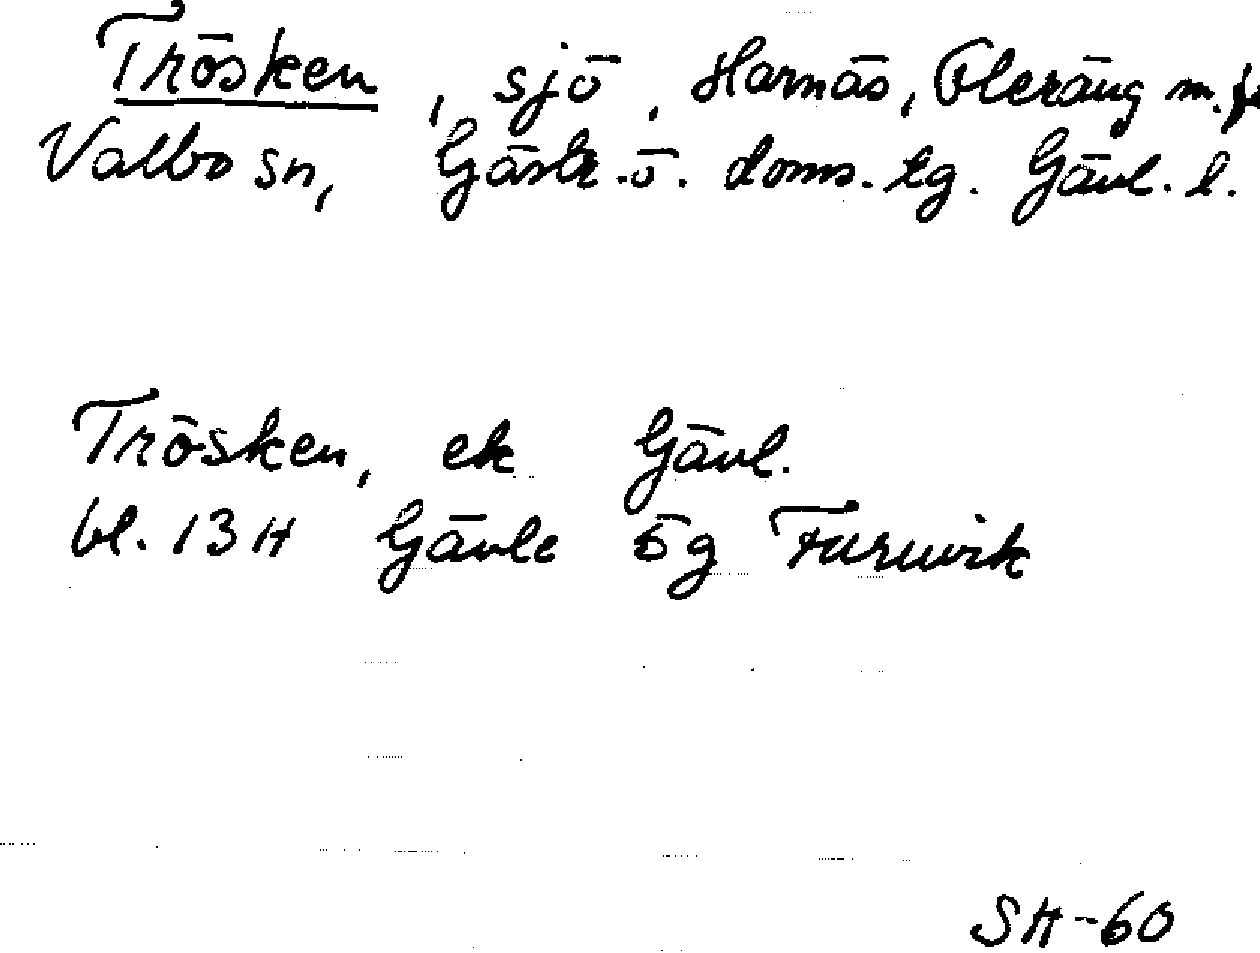 Trösken, sjö, Harnäs, Överäng m. fl
Valbo sn, Gästr. ö. doms. tg. Gävl. l.
Trösken, ek Gävl.
bl. 13 H Gävle 5g Furuvik
SH-60